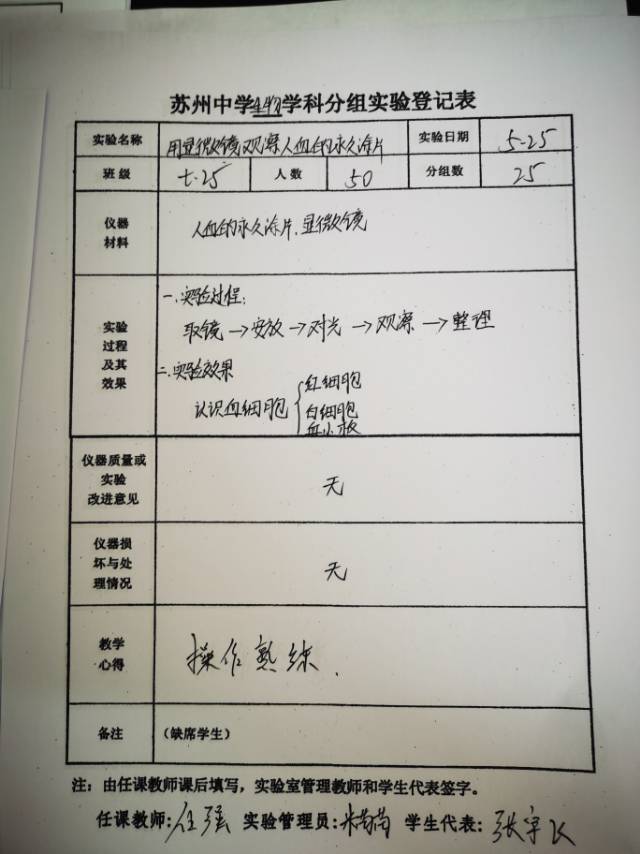 苏州中学生物学科分组实验登记表
实验名称 用显微镜观察人血的永久涂片 实验日期 5-25
班级 七·25 人数 50 分组数 25
仪器材料 人血的永久涂片、显微镜
实验过程及其效果
一.实验过程:
取镜→安放→对光→观察→整理
二.实验效果
认识血细胞
红细胞
白细胞
血小板
仪器质量或实验改进意见 无
仪器损坏与处理情况 无
教学心得 操作熟练.
备注 (缺席学生)
注：由任课教师课后填写，实验室管理教师和学生代表签字。
任课教师: 任强 实验管理员: 学生代表: 张宇